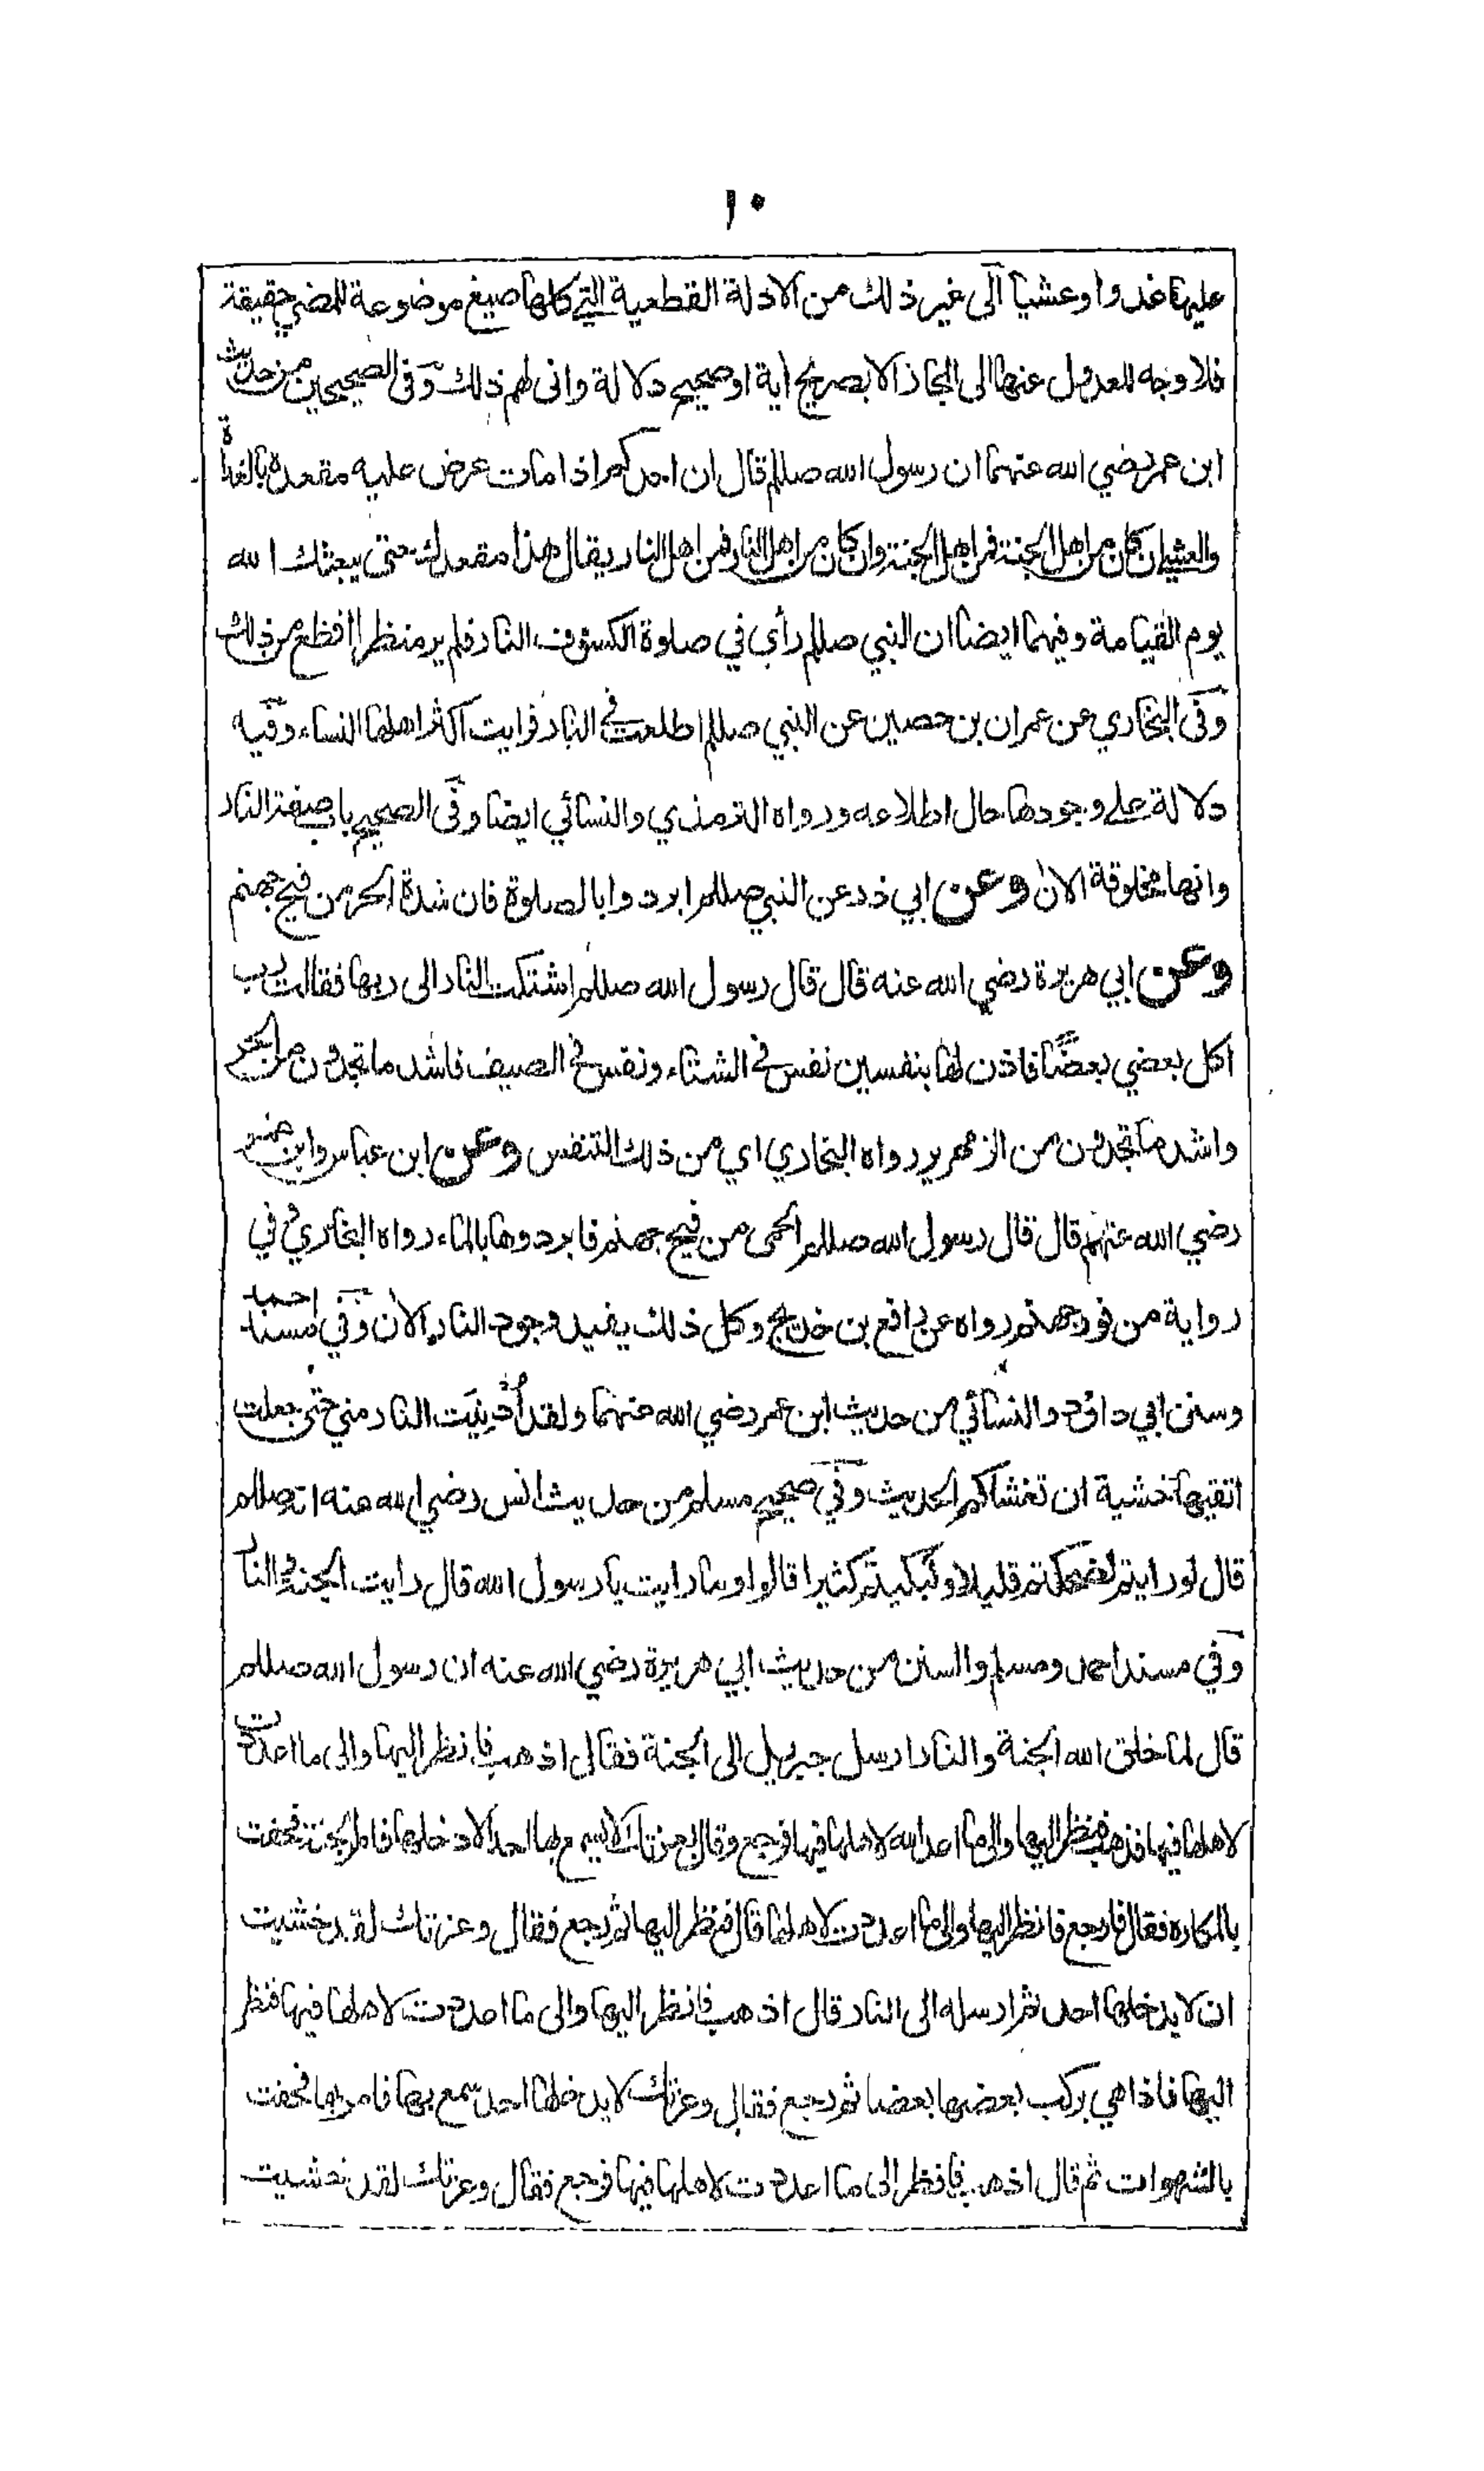 ١٠
عليها غدوا وعشيا الى غير ذلك من الادلة القطعية التي كلها صيغ موضوعة للمضي حقيقة
فلا وجه للعدول عنها الى المجاز الا بصريح أية او صحيح دلالة وانى لهم ذلك وفى الصحيحين من حديث
ابن عمر رضي الله عنهما ان رسول الله صللم قال ان احدكم اذا مات عرض عليه مقعده بالغداة
والعشي ان كان من اهل الجنة فمن اهل الجنة وان كان من اهل النار فمن اهل النار يقال هذا مقعدك حتى يبعثك الله
يوم القيامة وفيهما ايضا ان النبي صللم رأى في صلوة الكسوف النار فلم ير منظرا افظع من ذلك
وفى البخاري عن عمران بن حصين عن النبي صللم اطلعت في النار فرايت اكثر اهلها النساء وفيه
دلالة على وجودها حال اطلاعه ورواه الترمذي والنسائي ايضا وفى الصحيح باب صفة النار
وانها مخلوقة الان وعن ابي ذر عن النبي صللم ابردوا بالصلوة فان شدة الحر من فيح جهنم
وعن ابي هريرة رضي الله عنه قال قال رسول الله صللم اشتكت النار الى ربها فقالت رب
اكل بعضي بعضًا فاذن لها بنفسين نفس في الشتاء ونفس في الصيف فاشد ما تجدون من الحر
واشد ما تجدون من الزمهرير رواه البخاري اي من ذلك التنفس وعن ابن عباس وابن عمر
رضي الله عنهم قال قال رسول الله صللم الحمى من فيح جهنم فابردوها بالماء رواه البخاري وفي
رواية من فور جهنم رواه عن رافع بن خديج وكل ذلك يفيد وجود النار الان وفي مسند احمد
وسنن ابي داؤد والنسائي من حديث ابن عمر رضي الله عنهما ولقد أُدْنِيَت النار مني حتى جعلت
اتقيها خشية ان تغشاكم الحديث وفي صحيح مسلم من حديث انس رضي الله عنه انه صللم
قال لو رايتم لضحكتم قليلا ولبكيتم كثيرا قالوا وما رايت يا رسول الله قال رايت الجنة والنار
وفي مسند احمد ومسلم والسنن من حديث ابي هريرة رضي الله عنه ان رسول الله صللم
قال لما خلق الله الجنة والنار ارسل جبريل الى الجنة فقال اذهب فانظر اليها والى ما اعددت
لاهلها فيها فذهب فنظر اليها والى ما اعد الله لاهلها فيها فرجع وقال بعزتك لا يسمع بها احد الا دخلها فامر بالجنة فحفت
بالمكاره فقال فارجع فانظر اليها والى ما اعددت لاهلها قال فنظر اليها ثم رجع فقال وعزتك لقد خشيت
ان لا يدخلها احد ثم ارسله الى النار قال اذهب فانظر اليها والى ما اعددت لاهلها فيها فنظر
اليها فاذا هي يركب بعضها بعضا ثم رجع فقال وعزتك لا يدخلها احد سمع بها فامر بها فحفت
بالشهوات ثم قال اذهب فانظر الى ما اعددت لاهلها فيها فرجع فقال وعزتك لقد خشيت